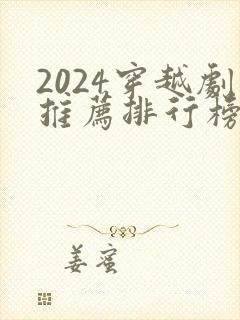 2024穿越劇
推薦排行榜
姜蜜